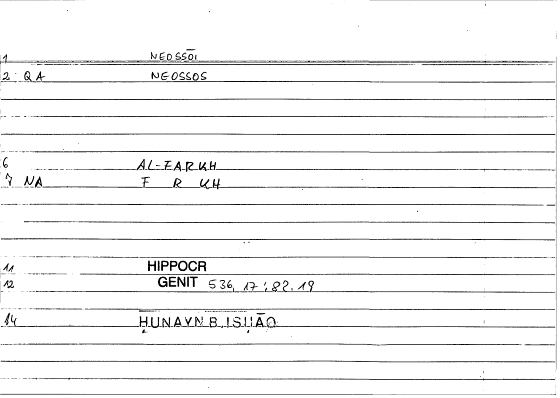 1 NEOSSŌI
2 QA NEOSSOS
6 AL-FARKH
7 NA F R KH
11 HIPPOCR
12 GENIT 536, 17 : 82.19
14 ḤUNAYN B. ISḤĀQ